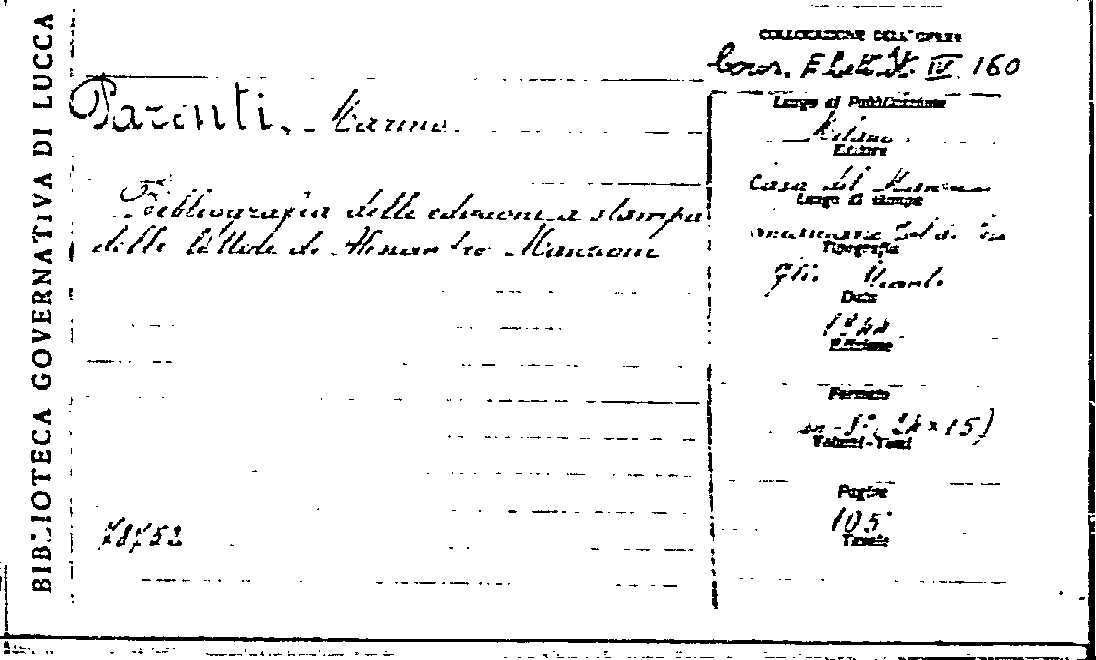 BIBLIOTECA GOVERNATIVA DI LUCCA
COLLOCAZIONE DELL'OPERA
IV 160
Parenti, Marino
Luogo di Pubblicazione
Milano
Editore
Bibliografia delle edizioni a stampa
delle lettere di Alessandro Manzoni
Casa del
Luogo di stampa
Tipografia
Data
Edizione
Formato
in-8°, 24 x 15)
Volumi-Tomi
Pagine
105
Tavole